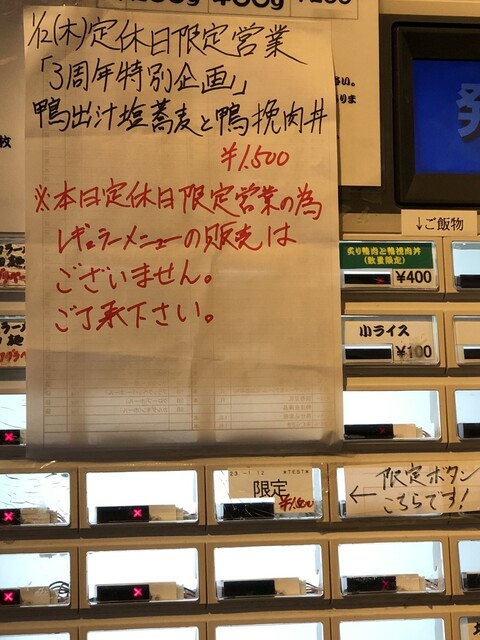 1/12(木)定休日限定営業
「3周年特別企画」
鴨出汁塩蕎麦と鴨挽肉丼
¥1,500
※本日定休日限定営業の為
レギュラーメニューの販売は
ございません。
ご了承下さい。
↓ご飯物
炙り鴨肉と鴨挽肉丼
(数量限定)
¥400
小ライス
¥100
23.-1.12 *TEST*
限定
¥1,500
← 限定ボタン
こちらです!